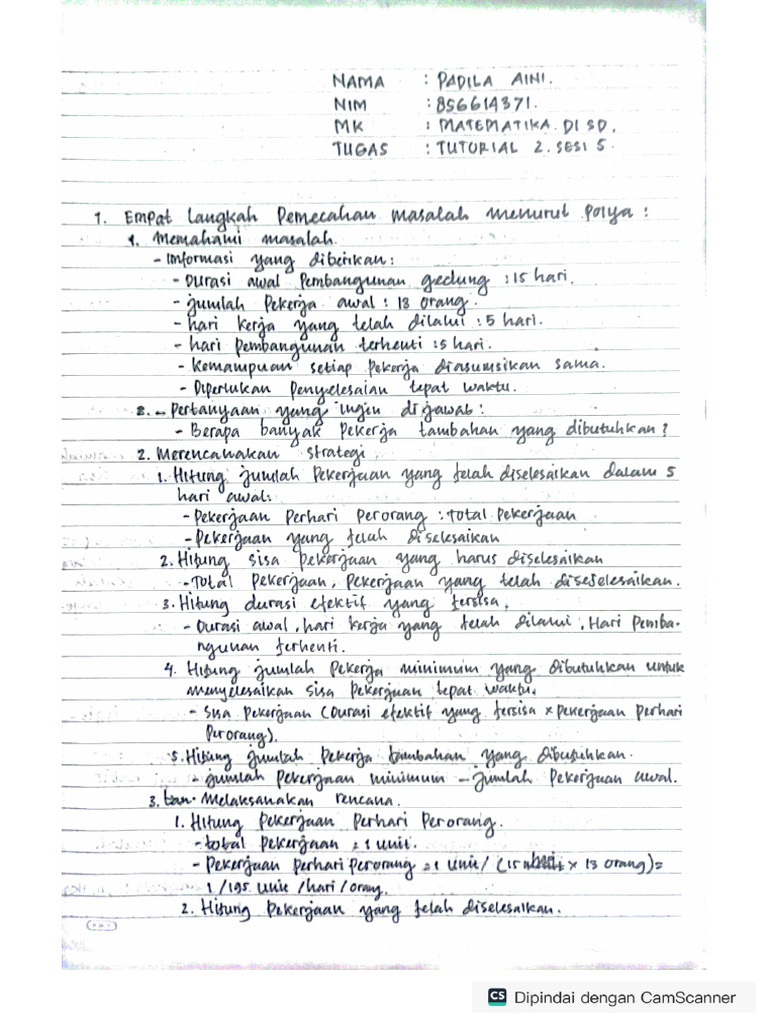 NAMA : PADILA AINI.
NIM : 856614371.
MK : MATEMATIKA DI SD.
TUGAS : TUTORIAL 2. SESI 5.
1. Empat langkah Pemecahan masalah menurut Polya :
1. Memahami masalah.
- Informasi yang diberikan :
- Durasi awal Pembangunan gedung : 15 hari.
- jumlah Pekerja awal : 13 orang.
- hari kerja yang telah dilalui : 5 hari.
- hari Pembangunan terhenti : 5 hari.
- Kemampuan setiap Pekerja diasumsikan sama.
- Diperlukan Penyelesaian tepat waktu.
- Pertanyaan yang ingin dijawab :
- Berapa banyak Pekerja tambahan yang dibutuhkan ?
2. Merencanakan strategi.
1. Hitung jumlah Pekerjaan yang telah diselesaikan dalam 5
hari awal:
- Pekerjaan Perhari Perorang : Total Pekerjaan
- Pekerjaan yang telah diselesaikan
2. Hitung sisa Pekerjaan yang harus diselesaikan
- Total Pekerjaan, Pekerjaan yang telah diseselesaikan.
3. Hitung durasi efektif yang tersisa.
- Durasi awal, hari kerja yang telah dilalui, Hari Pemba-
ngunan terhenti.
4. Hitung jumlah Pekerja minimum yang dibutuhkan untuk
menyelesaikan sisa Pekerjaan tepat waktu.
- Sisa Pekerjaan (Durasi efektif yang tersisa x Pekerjaan Perhari
Perorang).
5. Hitung jumlah Pekerja tambahan yang dibutuhkan.
- jumlah Pekerjaan minimum - Jumlah Pekerjaan awal.
3. Melaksanakan rencana.
1. Hitung Pekerjaan Perhari Perorang.
- total Pekerjaan = 1 unit.
- Pekerjaan Perhari Perorang = 1 unit / (15 x 13 orang) =
1/195 unit /hari /orang.
2. Hitung Pekerjaan yang telah diselesaikan.
CS Dipindai dengan CamScanner